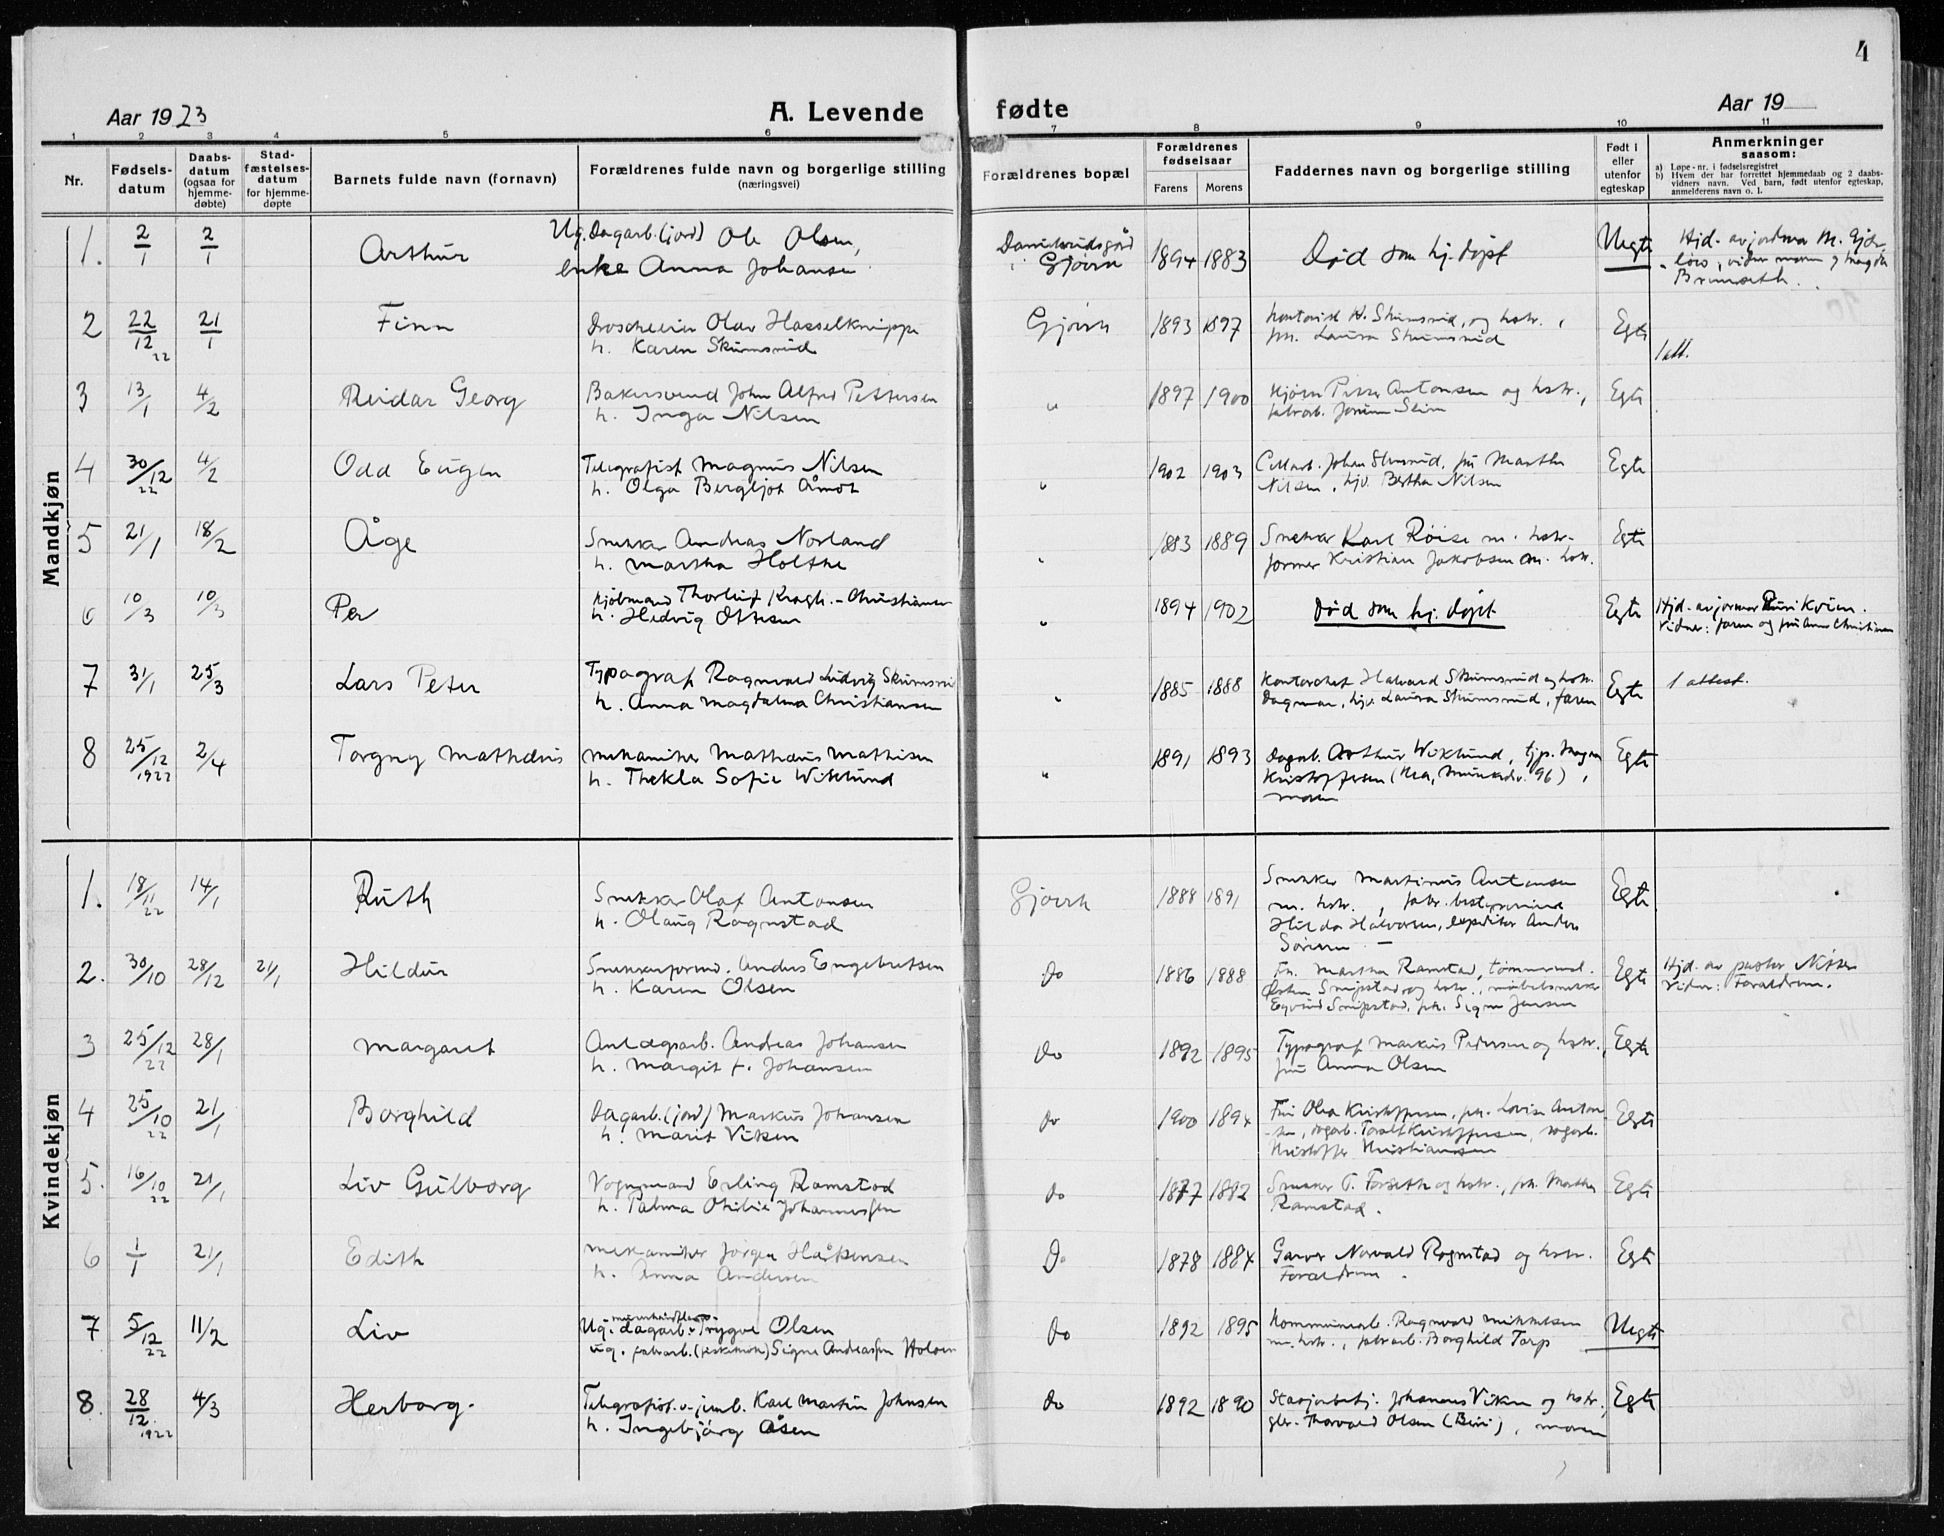 4
Aar 1923
A. Levende fødte
Aar 19
1 2 3 4 5 6 7 8 9 10 11
Nr.
Fødsels-
datum
Daabs-
datum
(ogsaa for
hjemme-
døbte)
Stad-
fæstelses-
datum
for hjemme-
døpte
Barnets fulde navn (fornavn)
Forældrenes fulde navn og borgerlige stilling
(næringsvei)
Forældrenes bopæl
Forældrenes
fødselsaar
Farens Morens
Faddernes navn og borgerlige stilling
Født i
eller
utenfor
egteskap
Anmerkninger
saasom:
a) Løpe-nr. i fødselsregistret
b) Hvem der har forrettet hjemmedaab og 2 daabs-
vidners navn. Ved barn, født utenfor egteskap,
anmelderens navn o. l.
Mandkjøn
1. 2/1 2/1 Arthur
Ug. Dagarb. (jord) Ole Olsen,
enke Anna Johansen
Gjøvik 1894 1883 Død som hj. døpt Uegte
Hjd. av jordmor M.
2 22/12 22 21/1 Finn
Olav Hasselknippe
h. Karen Skumsrud
Gjøvik 1893 1897
H. Skumsrud, og hstr.,
frk. Laura Skumsrud
Egte
1 att.
3 13/1 4/2 Reidar Georg
Bakersvend John Alfred Pettersen
h. Inga Nilsen
" 1897 1900
Peter Antonsen og hstr.,
fabrarb.
Egte
4 30/12 22 4/2 Odd Eugen
Telegrafist Magnus Nilsen
h. Olga Bergljot Åmot
" 1902 1903
Johan fru Martha
Nilsen, hjv. Bertha Nilsen
Egte
5 21/1 18/2 Åge
Snekker Andreas Norland
h. Martha Holthe
" 1883 1889
Snekker Karl Röise m. hstr.
former Kristian Jakobsen m. hstr.
Egte
6 10/3 10/3 Per
Kjøbmand Thorleif Kragh-Christiansen
h. Hedvig Ottesen
" 1894 1902 Død som hj. døpt Egte
Hjd. av jormor Kvien.
Vidner: faren og fru Anna Christiansen
7 31/1 25/3 Lars Peter
Typograf Ragnvald Ludvig Skumsrud
h. Anna Magdalena Christiansen
" 1885 1888
Kontorchef Halvard Skumsrud og hstr.
Dagmar, hjv. Laura Skumsrud, faren
Egte
1 attest.
8 25/12 1922 2/4 Torgny Mathæus
Mekaniker Mathæus Mathisen
h. Thekla Sofie Wiklund
" 1891 1893
Dagarb. Arthur Wiklund, typ. Magn
Kristoffersen (Kra, 96),
moren
Egte
Kvindekjøn
1. 18/11 22 14/1 Ruth
Snekker Olaf Antonsen
h. Olaug Rognstad
Gjøvik 1888 1891
Snekker Martinius Antonsen
m. hstr., fabr.bestyrerinne
Hilda Halvorsen, expeditør Anders
Sørensen
Egte
2. 30/10 28/12 21/1 Hildur
Anders Engebretsen
h. Karen Olsen
Do 1886 1888
Fr. Martha Ramstad,
Snipstad og hstr., møbelsnekker
Snipstad, frk. Signe Jensen
Egte
Hjd. av pastor
Vidner: Foraldrene.
3 25/12 22 28/1 Margaret
Anlægsarb. Andreas Johansen
h. Margit f. Johansen
Do 1892 1895
Typograf Markus Pedersen og hstr.,
fru Anna Olsen
Egte
4 25/10 22 21/1 Borghild
Dagarb. (jord) Markus Johansen
h. Marit Viken
Do 1900 1894
Fru Olea Kristoffersen, frk. Lovise Anton-
sen, dagarb. Toralf Kristoffersen, dagarb.
Kristoffer Kristiansen
Egte
5. 16/10 22 21/1 Liv Gulborg
Vognmand Erling Ramstad
h. Palma Otilie Johannessen
Do 1877 1882
Snekker T. Forseth og hstr., frk. Martha
Ramstad.
Egte
6 1/1 21/1 Edith
Mekaniker Jørgen Håkensen
h. Anna Andersen
Do 1878 1884
Garver Norvald Rognstad og hstr.
Foraldrene.
Egte
7 5/12 22 11/2 Liv
Ug. dagarb. Trygve Olsen
ug. fabrarb. Signe Andreassen Holoen
Do 1892 1895
Kommunearb. Ragnvald Mikkelsen
m. hstr., fabrarb. Borghild Torp
Uegte
8. 28/12 1922 4/3 Herborg.
Telegrafist v. jernb. Karl Martin Johnsen
h. Ingebjørg Åsen
Do 1892 1890
Johannes Viken og hstr.,
Thorvald Olsen (Biri), moren
Egte